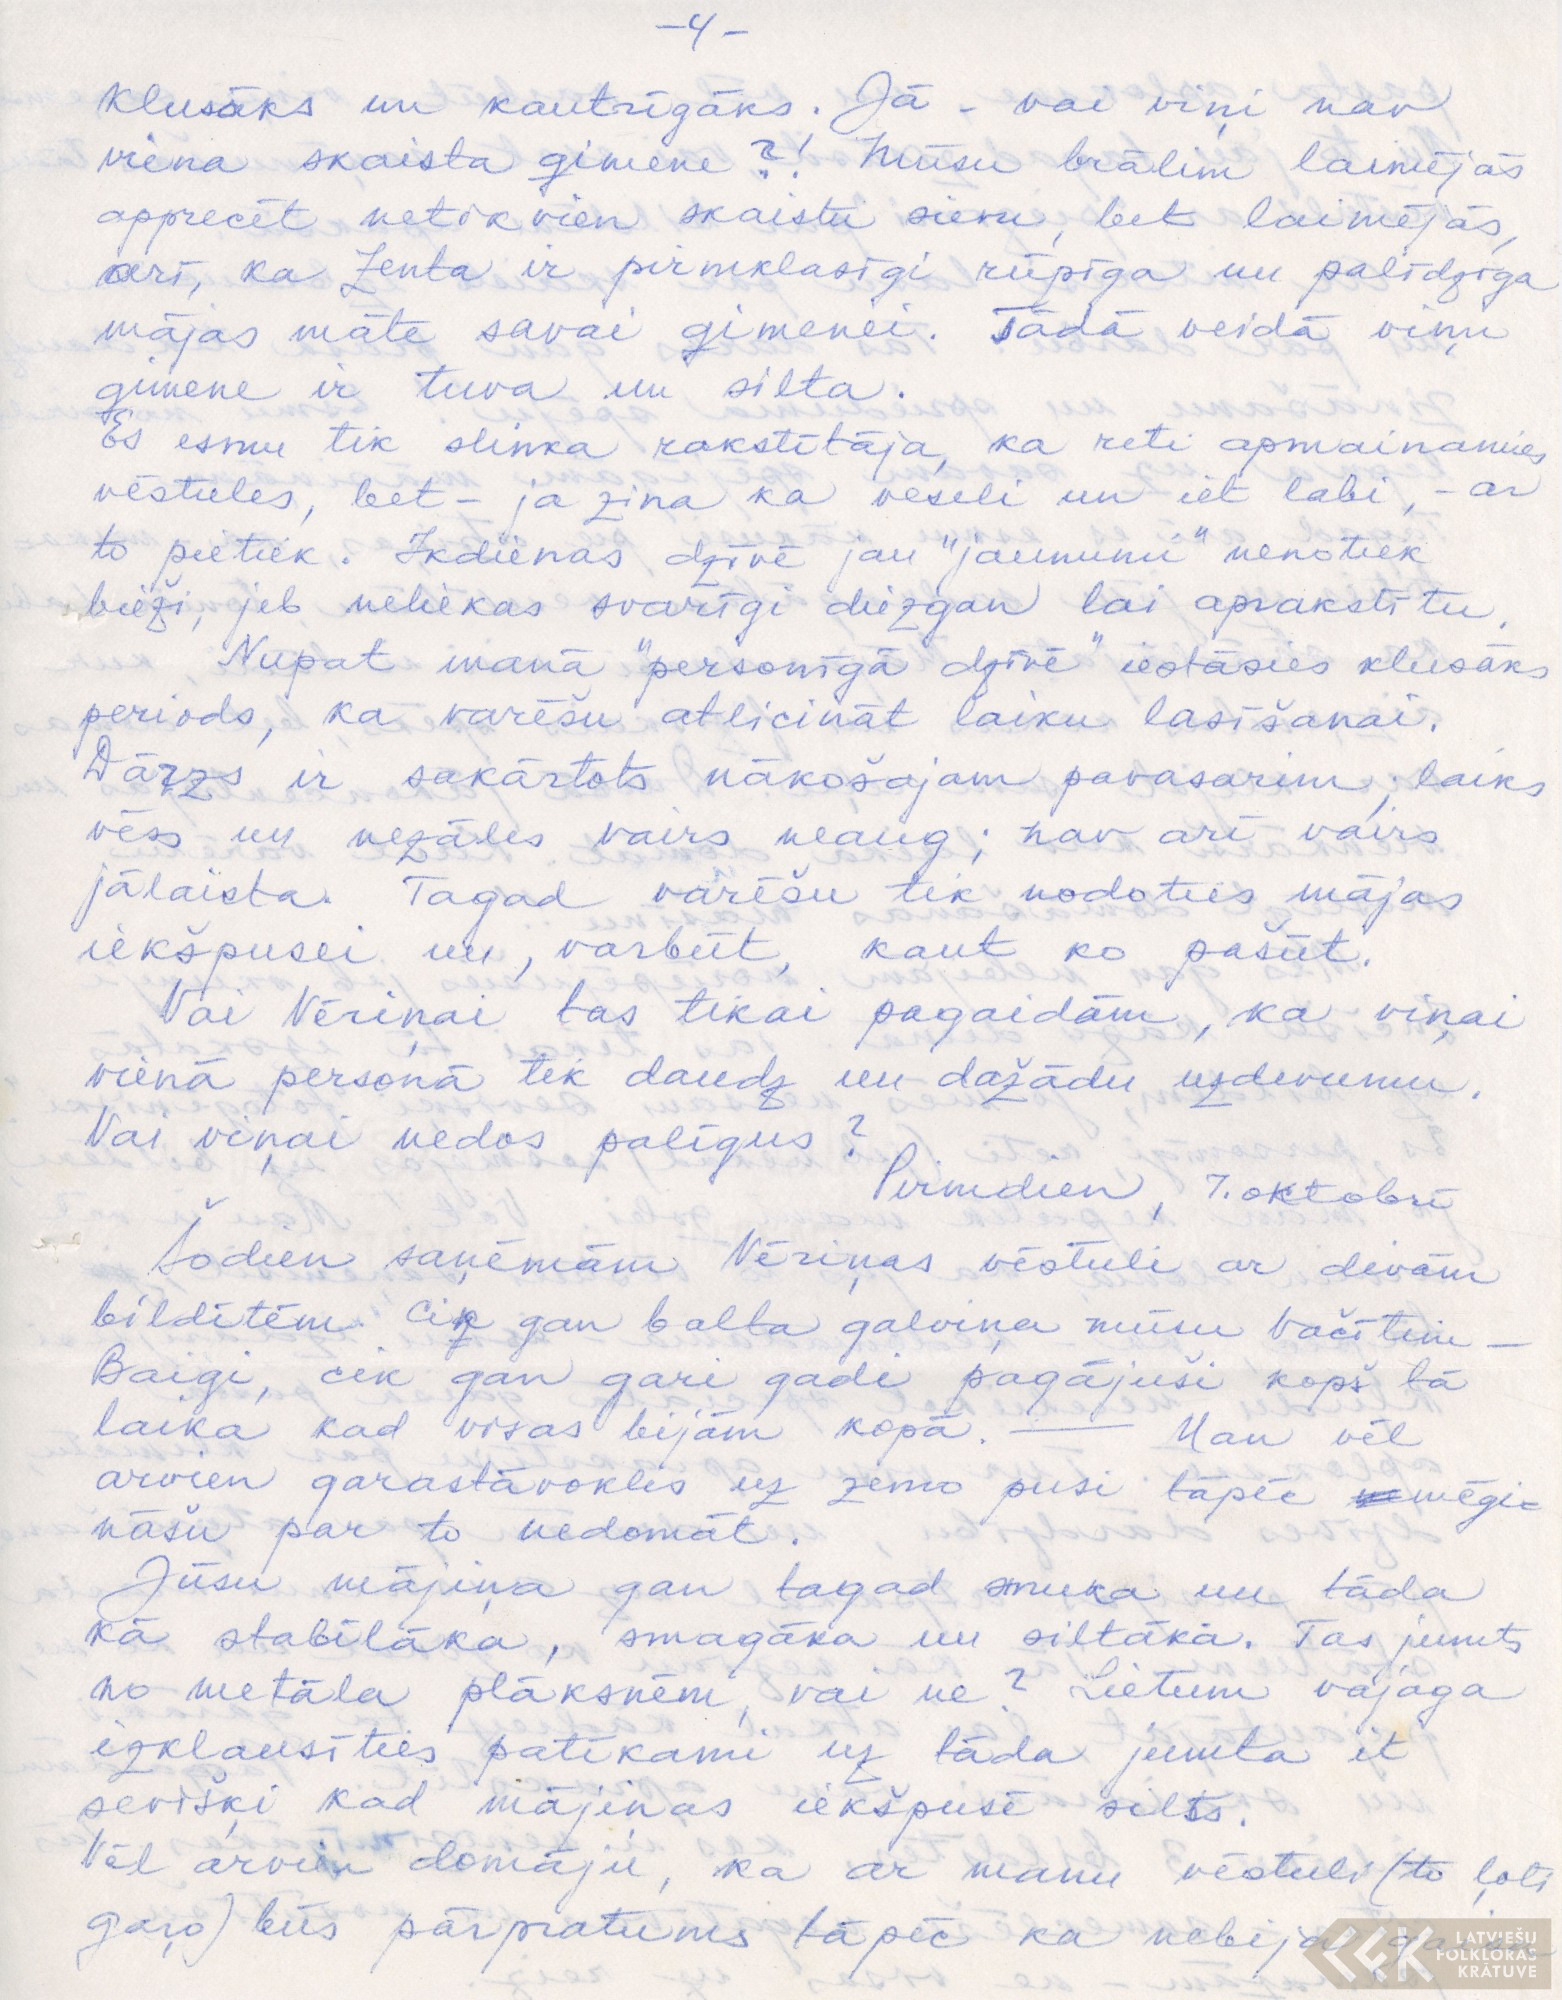 -4-
klusāks un kautrīgāks. Jā - vai viņi nav
viena skaista ģimene?! Mūsu brālim laimējās
apprecēt netikvien skaistu sievu, bet laimējās,
arī, ka Zenta ir pirmklasīgi rūpīga un palīdzīga
mājas māte savai ģimenei. Tādā veidā viņu
ģimene ir tuva un silta.
Es esmu tik slinka rakstītāja, ka reti apmainamies
vēstules, bet - ja zina ka veseli un iet labi, - ar
to pietiek. Ikdienas dzīvē jau "jaunumi" nenotiek
bieži, jeb neliekas svarīgi diezgan lai aprakstītu.
Nupat manā "personīgā dzīvē" iestāsies klusāks
periods, ka varēšu atlicināt laiku lasīšanai.
Dārzs ir sakārtots nākošajam pavasarim; laiks
vēss un nezāles vairs neaug; nav arī vairs
jālaista. Tagad varēšu tik nodoties mājas
iekšpusei un, varbūt, kaut ko pašūt.
Vai Vēriņai tas tikai pagaidām, ka viņai
vienā personā tik daudz un dažādu uzdevumu.
Vai viņai nedos palīgus?
Pirmdien, 7. oktobrī
Šodien saņēmām Vēriņas vēstuli ar divām
bildītēm. Cik gan balta galviņa mūsu Vačītim -
Baigi, cik gan gari gadi pagājuši kopš tā
laika kad visas bijām kopā. — Man vēl
arvien garastāvoklis uz zemo pusi tāpēc mēģi-
nāšu par to nedomāt.
Jūsu mājiņa gan tagad smuka un tāda
kā stabilāka, smagāka un siltāka. Tas jumts
no metāla plāksnēm, vai ne? Lietum vajaga
izklausīties patīkami uz tāda jumta it
sevišķi kad mājiņas iekšpusē silts.
Vēl arvien domāju, ka ar manu vēstuli (to ļoti
gaŗo) būs pārpratums tāpēc ka nebija
LATVIEŠU
FOLKLORAS
KRĀTUVE